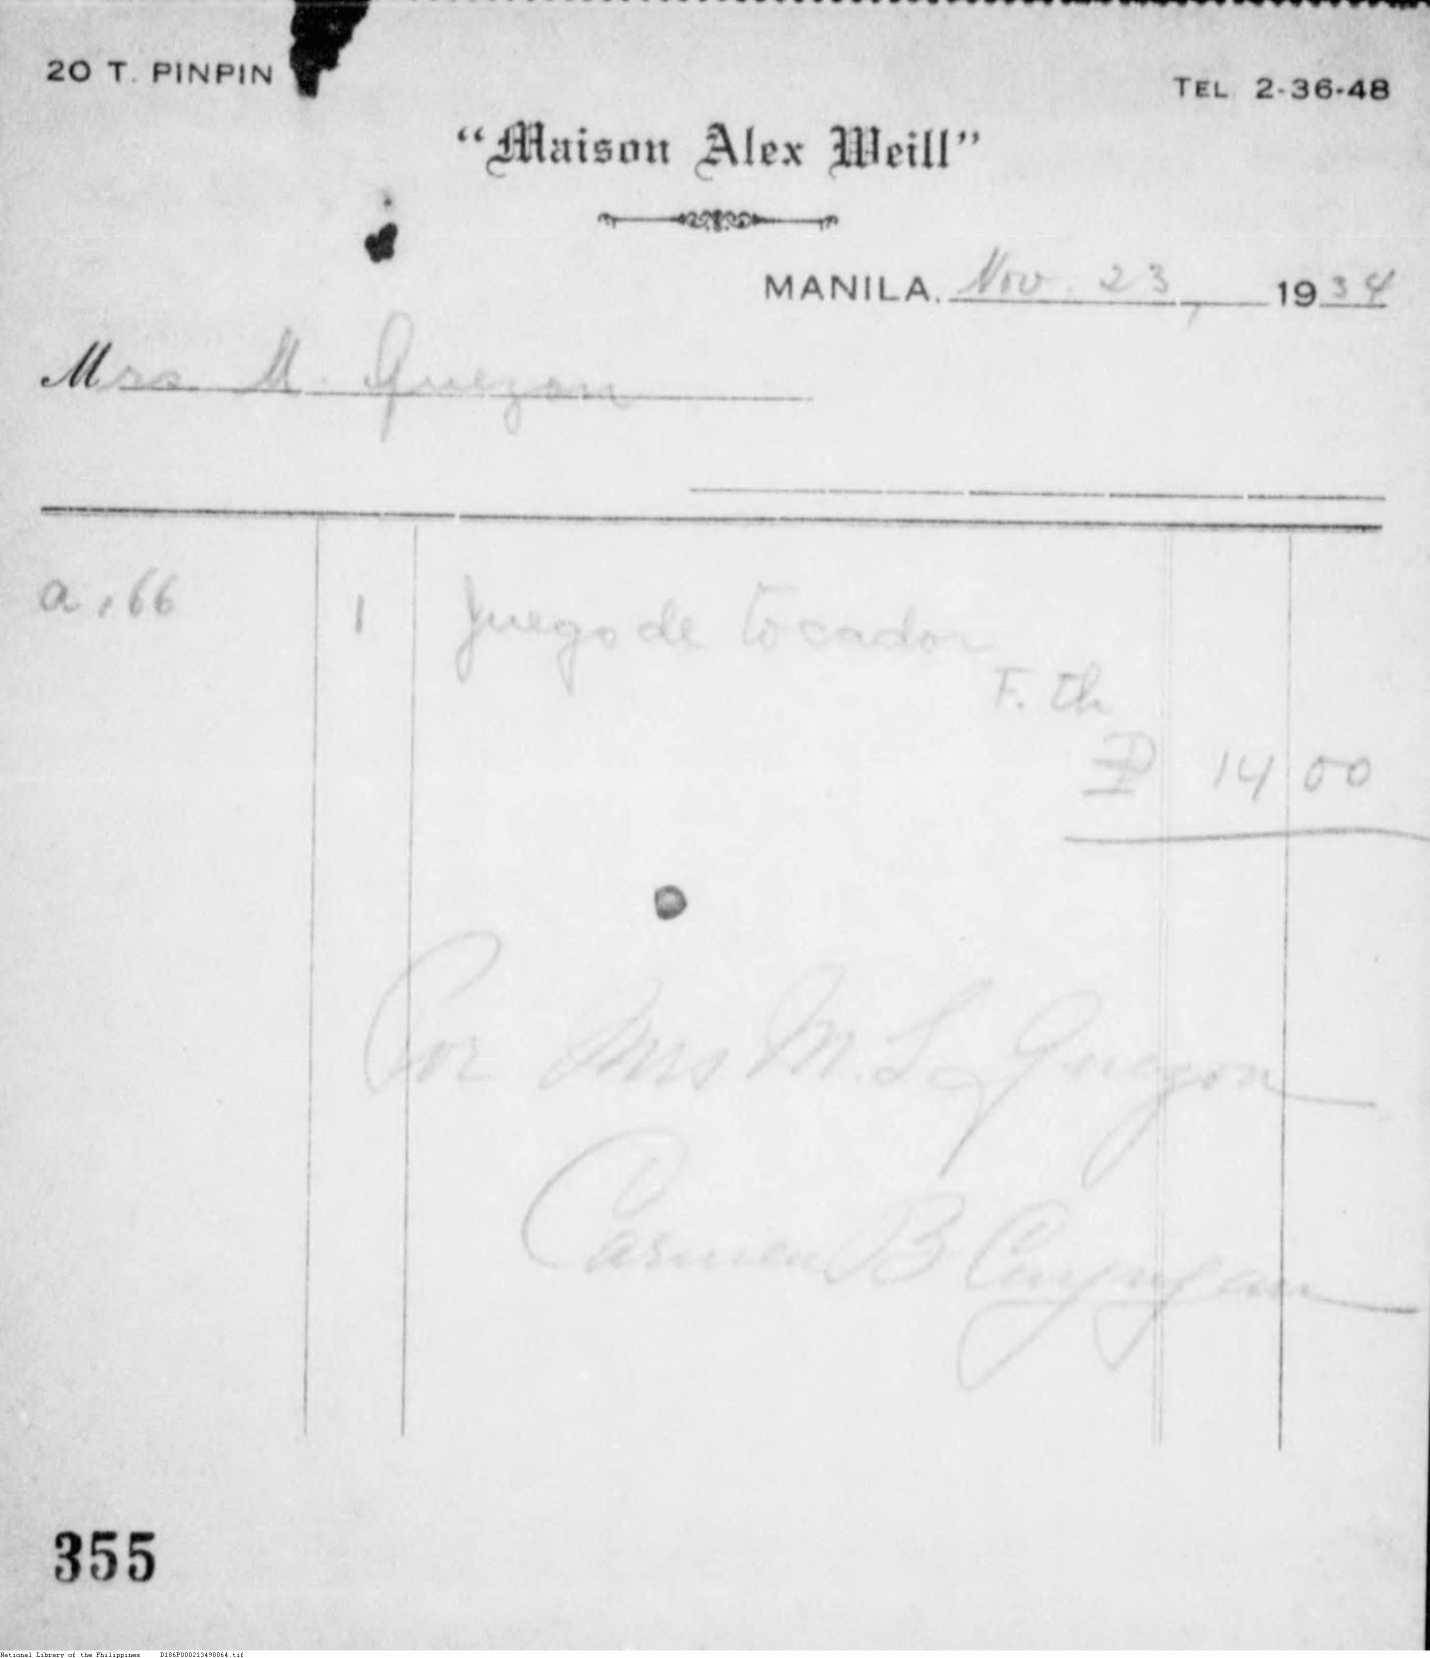 20 T. PINPIN
TEL. 2-36-48
"Maison Alex Weill"
MANILA, Nov. 23, 1934
Mrs M. Quezon
a.66 1 Juego de tocador
F. th
₱ 14 00
Por Mrs M. L. Quezon
Carmen B
355
National Library of the Philippines D186P000213490064.tif